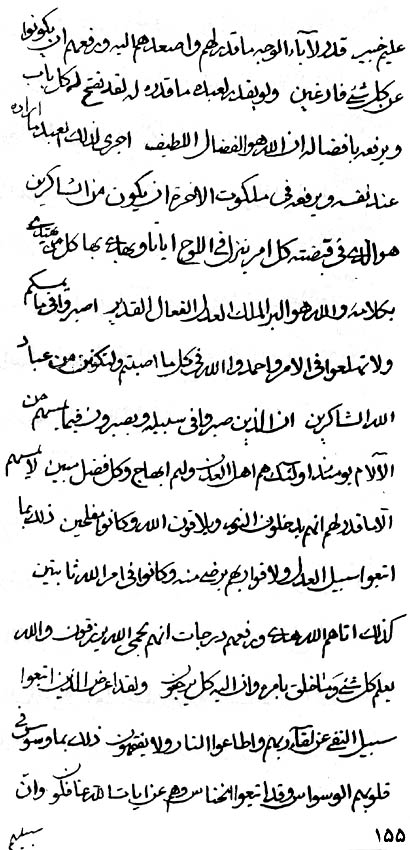 عليم خبير قدر لآباء الوجه ما قدر لهم واصعدهم اليه ويرفعهم ان يكونوا
عن كل شئ فارغين ولو يقدر لعبده ما قدره له لقد يفتح له كل باب
ويرفعه بافضاله ان الله هو الفضال اللطيف اجرى لذلك العبد ما اراده
عند نفسه ويرفعه في ملكوت الامر ان يكون من الشاكرين
هو الذي في قبضته كل امر ينزل في اللوح اياتا ويهدي بها كل من يهتدي
بكلامه والله هو البر الملك العدل الفعال القدير اصبروا في ما يمسكم
ولا تهلعوا في الامر واحمدوا الله في كل ما اصبتم ولتكونن من عباد
الله الشاكرين ان الذين صبروا في سبيله ويصبرون فيما يمسهم من
الآلام يومئذ اولئك هم اهل العدل ولهم ابهاج وكل فضل مبين لا يمسهم
الا ما قدر لهم انهم يدخلون النور ويلاقون الله وكانوا مفلحين ذلك بما
اتبعوا سبيل العدل ولاقوا ربهم برضى منه وكانوا في امر الله ثابتين
كذلك اتاهم الله هدى ورفعهم درجات انهم بحمى الله يرزقون والله
يعلم كل شئ وما خلق بامره وان اليه كل يرجعون ولقد اعرض الذين اتبعوا
سبيل النفي عن لقاء ربهم واطاعوا النار ولا يفقهون ذلك بما وسوس في
قلوبهم الوسواس وقد اتبعوا الخناس وهم عن ايات الله غافلون وان
سبيلهم
١٥٥